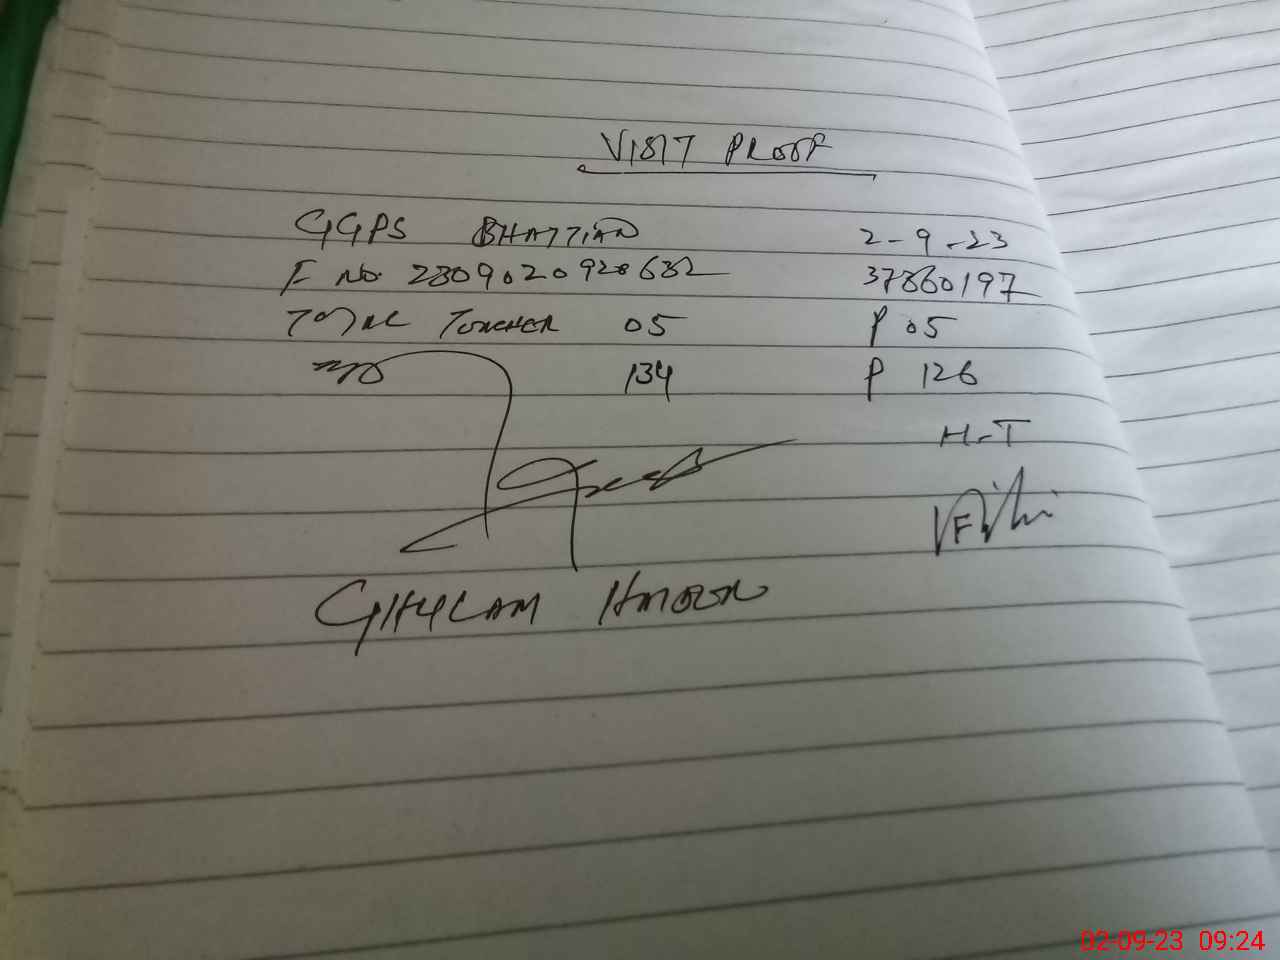 VISIT PROOF
GGPS BHATTIAN 2-9-23
F No. 2309020928682 37360197
TOTAL TEACHER 05 P 05
134 P 126
H-T
GHULAM
02-09-23 09:24